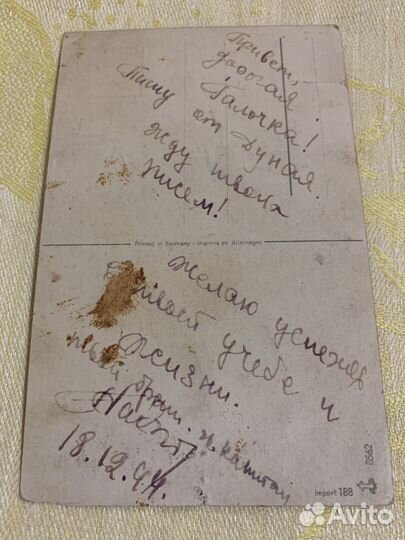 Привет,
дорогая
Галочка!
Пишу от Дуная.
жду твоих
писем!
Printed in Germany - Imprimé en Allemagne
Желаю успехов
в твоей учебе и
жизни.
твой брат. к. капитан
18.12.44.
Import 188
8562
Avito